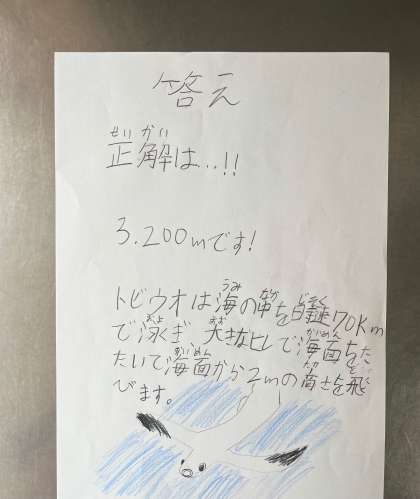 答え
せいかい
正解は…!!
3.200mです!
うみ なか じそく
トビウオは海の中を時速70Km
およ おお かいめん
で泳ぎ 大きなヒレで海面をた
かいめん たか と
たいて海面から2mの高さを飛
びます。